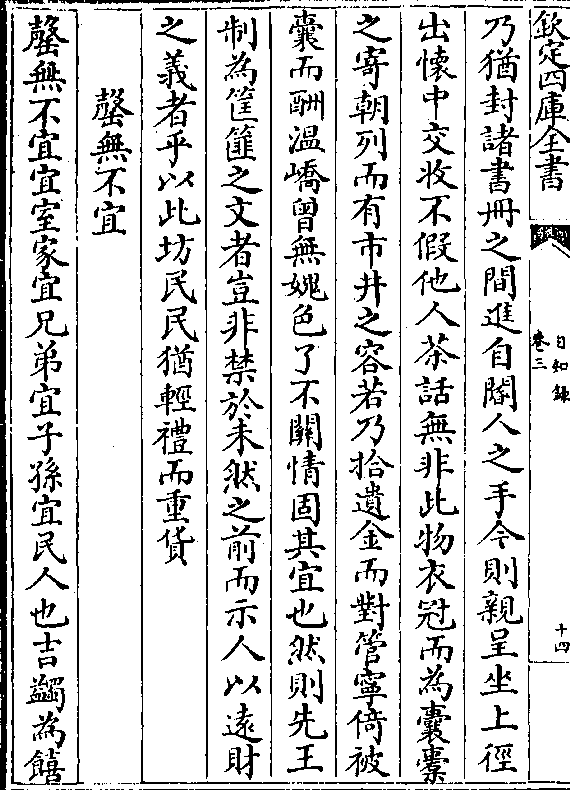 欽定四庫全書
日知錄
卷三
十四
乃猶封諸書冊之間進自閽人之手今則親呈坐上徑
出懷中交收不假他人茶話無非此物衣冠而為囊橐
之寄朝列而有市井之容若乃拾遺金而對管寧倚被
囊而酬溫嶠曾無媿色了不關情固其宜也然則先王
制為筐篚之文者豈非禁於未然之前而示人以遠財
之義者乎以此坊民民猶輕禮而重貨
罄無不宜
罄無不宜宜室家宜兄弟宜子孫宜民人也吉蠲為饎